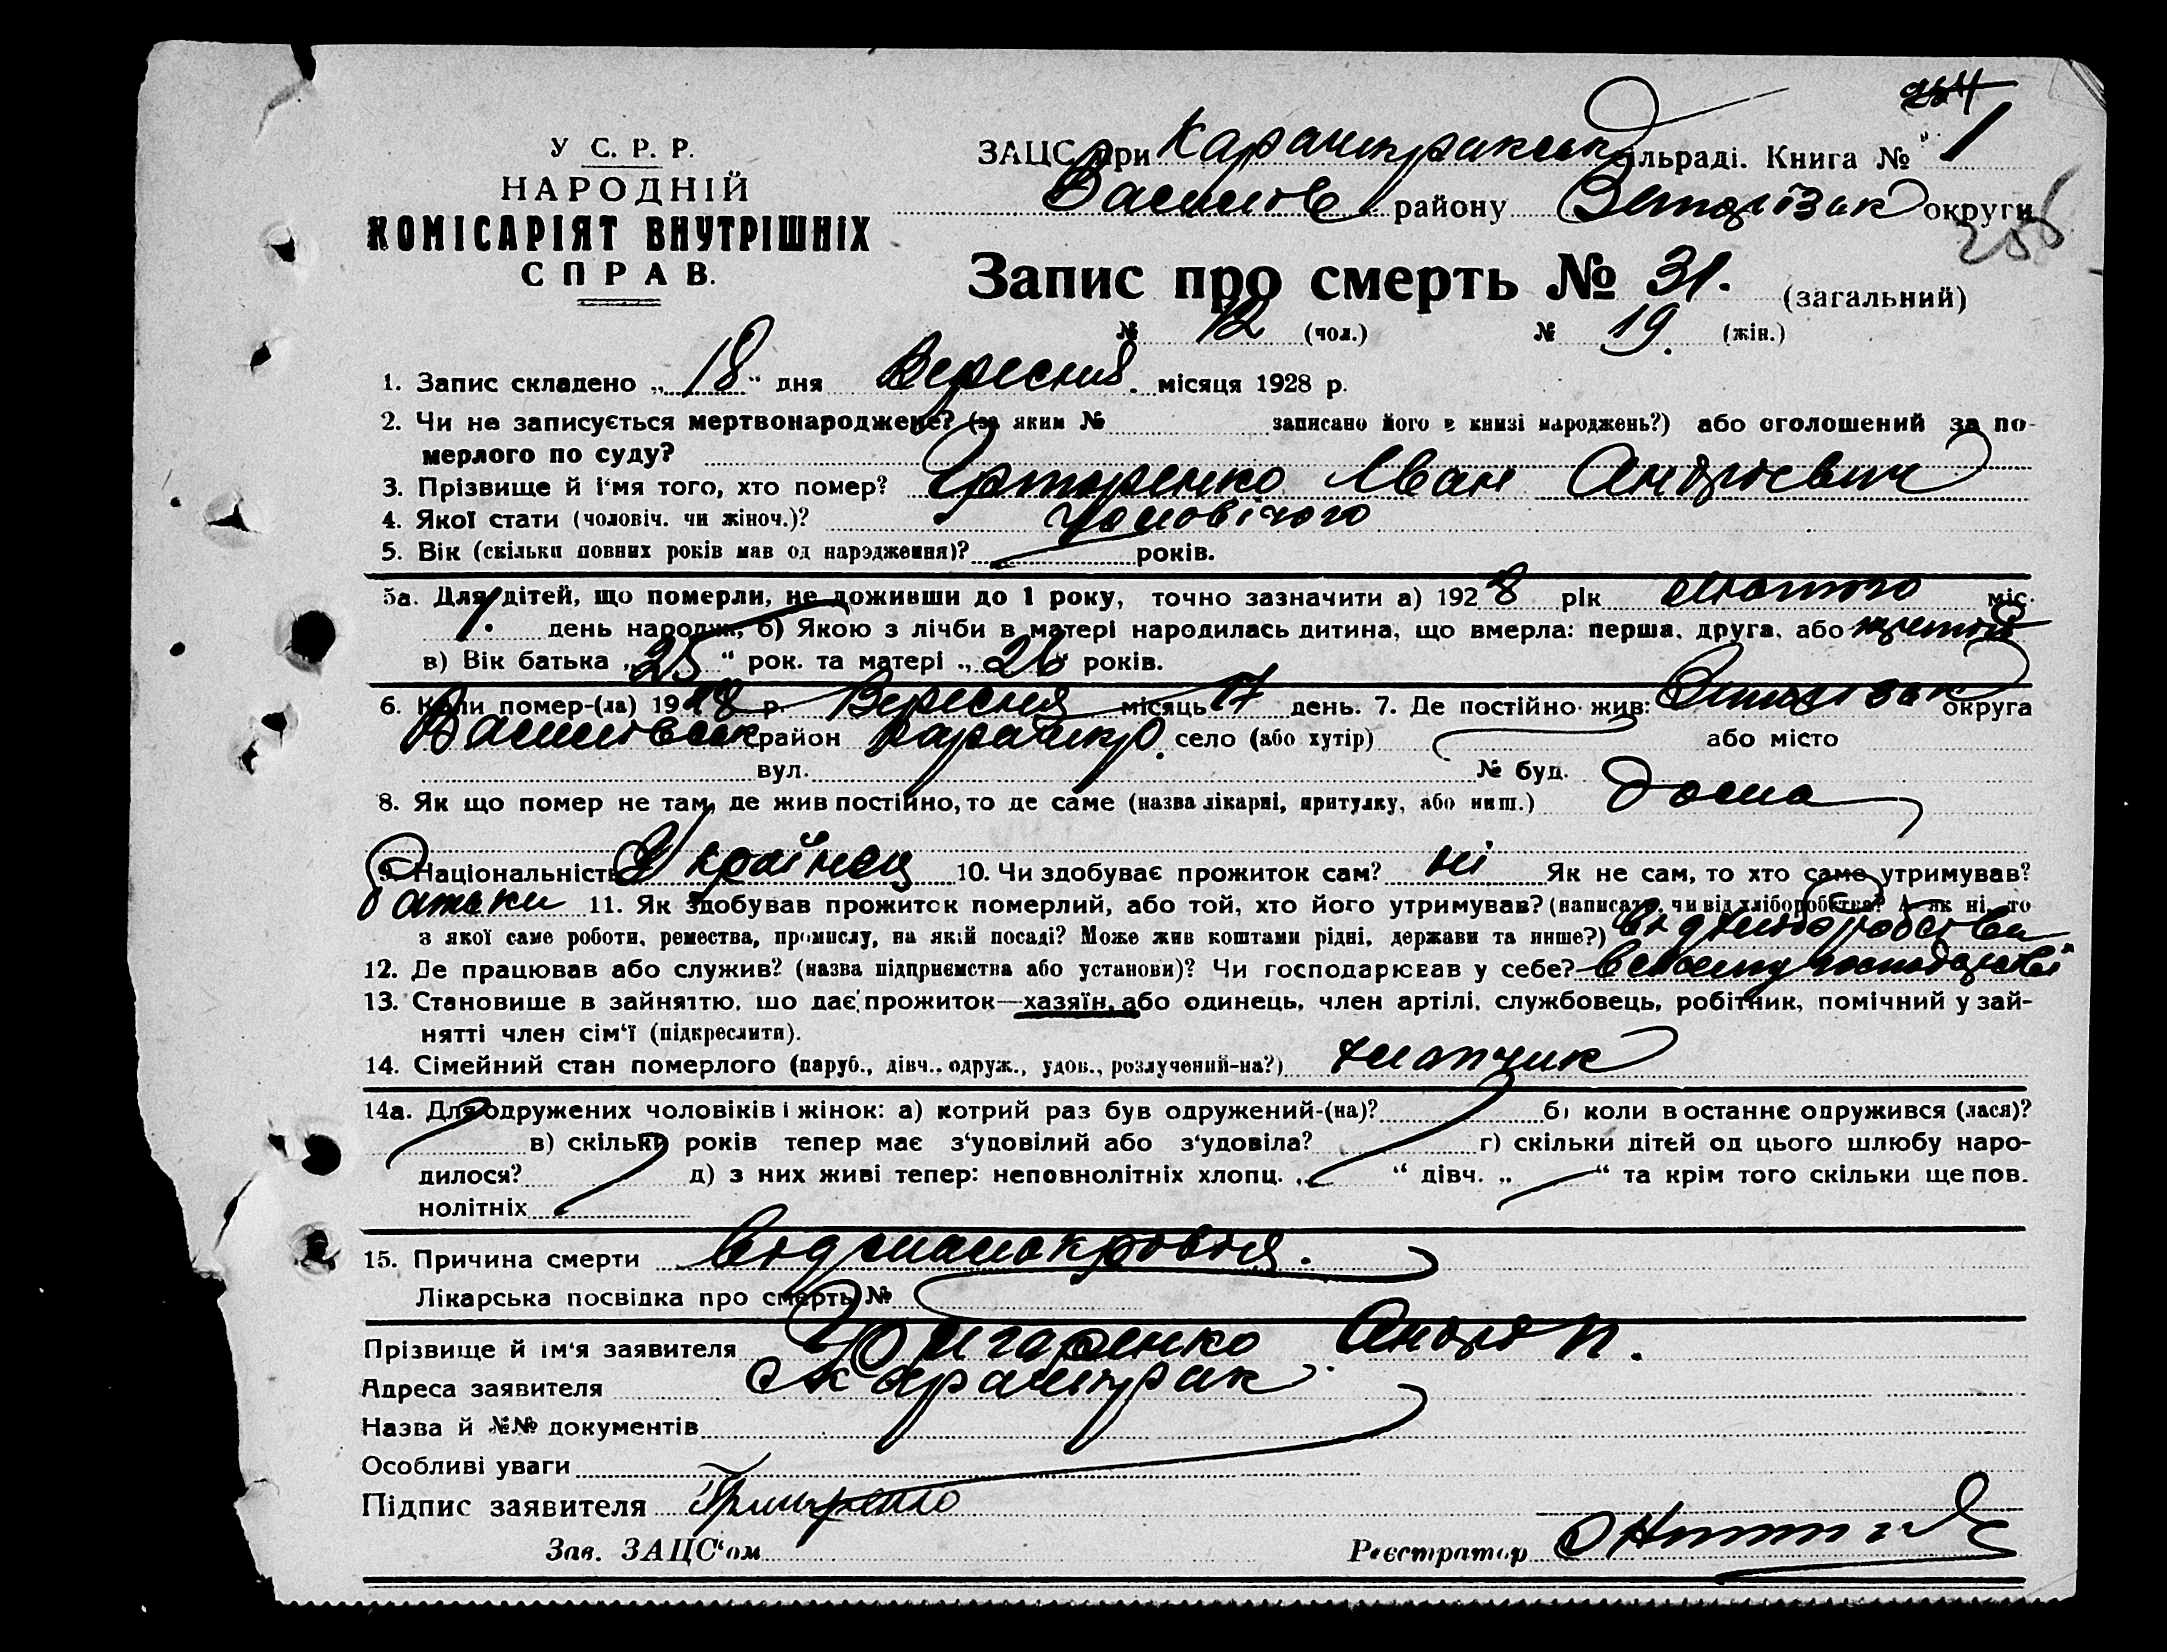 254
У С. Р. Р.
НАРОДНІЙ
КОМІСАРІЯТ ВНУТРІШНІХ
СПРАВ.
ЗАЦС при сільраді. Книга № 1
Василів району округи
256
Запис про смерть № 31. (загальний)
№ 12 (чол.) № 19. (жін.)
1. Запис складено „18“ дня Вересня. місяця 1928 р.
2. Чи не записується мертвонароджене? (за яким № записано його в книзі народжень?) або оголошений за по-
мерлого по суду?
3. Прізвище й і'мя того, хто помер? Іван Андрієвич
4. Якої стати (чоловіч. чи жіноч.)? чоловічого
5. Вік (скільки повних років мав од народження)? років.
5а. Для дітей, що померли, не доживши до 1 року, точно зазначити а) 1928 рік лютого міс.
1. день народж., б) Якою з лічби в матері народилась дитина, що вмерла: перша, друга, або
в) Вік батька „25“ рок. та матері „26“ років.
6. Коли помер-(ла) 1928 р. Вересня місяць 17 день. 7. Де постійно жив: округа
Василівськ район село (або хутір) або місто
вул. № буд.
8. Як що помер не там, де жив постійно, то де саме (назва лікарні, притулку, або инш.) дома
9. Національність Українец 10. Чи здобуває прожиток сам? ні Як не сам, то хто саме утримував?
батьки 11. Як здобував прожиток померлий, або той, хто його утримував? (написати, чи від хліборобства? А як ні, то
з якої саме роботи, ремества, промислу, на якій посаді? Може жив коштами рідні, держави та инше?) від хліборобства
12. Де працював або служив? (назва підприємства або установи)? Чи господарював у себе? в своєму господарстві
13. Становище в зайняттю, що дає прожиток—хазяїн, або одинець, член артілі, службовець, робітник, помічний у зай-
нятті член сім'ї (підкреслити).
14. Сімейний стан померлого (паруб., дівч., одруж., удов., розлучений-на?) хлопчик
14а. Для одружених чоловіків і жінок: а) котрий раз був одружений-(на)? б) коли в останнє одружився (лася)?
в) скільки років тепер має з'удовілий або з'удовіла? г) скільки дітей од цього шлюбу наро-
дилося? д) з них живі тепер: неповнолітніх хлопц. „ “ дівч. „ “ та крім того скільки ще пов.
нолітніх
15. Причина смерти від малокровія.
Лікарська посвідка про смерть №
Прізвище й ім'я заявителя Григоренко Андрій П.
Адреса заявителя
Назва й №№ документів
Особливі уваги
Підпис заявителя
Зав. ЗАЦС'ом Реєстратор